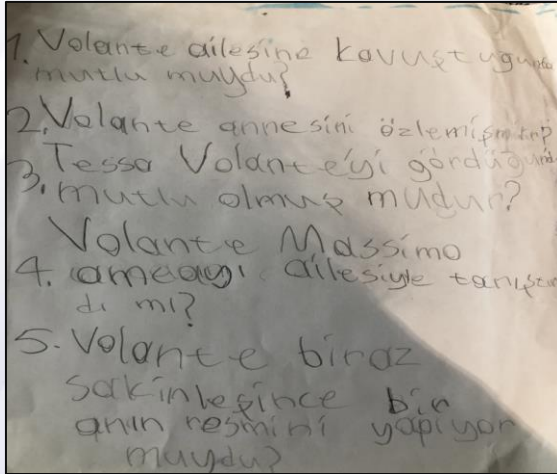 1. Volante ailesine kavuştuğunda
mutlu muydu?
2. Volante annesini özlemişmtr?
3. Tessa Volante'yi gördüğünde
mutlu olmuş mudur?
Volante Massimo
4. amcayı ailesiyle tanıştır
dı mı?
5. Volante biraz
sakinleşince bir
anın resmini yapıyor
muydu?